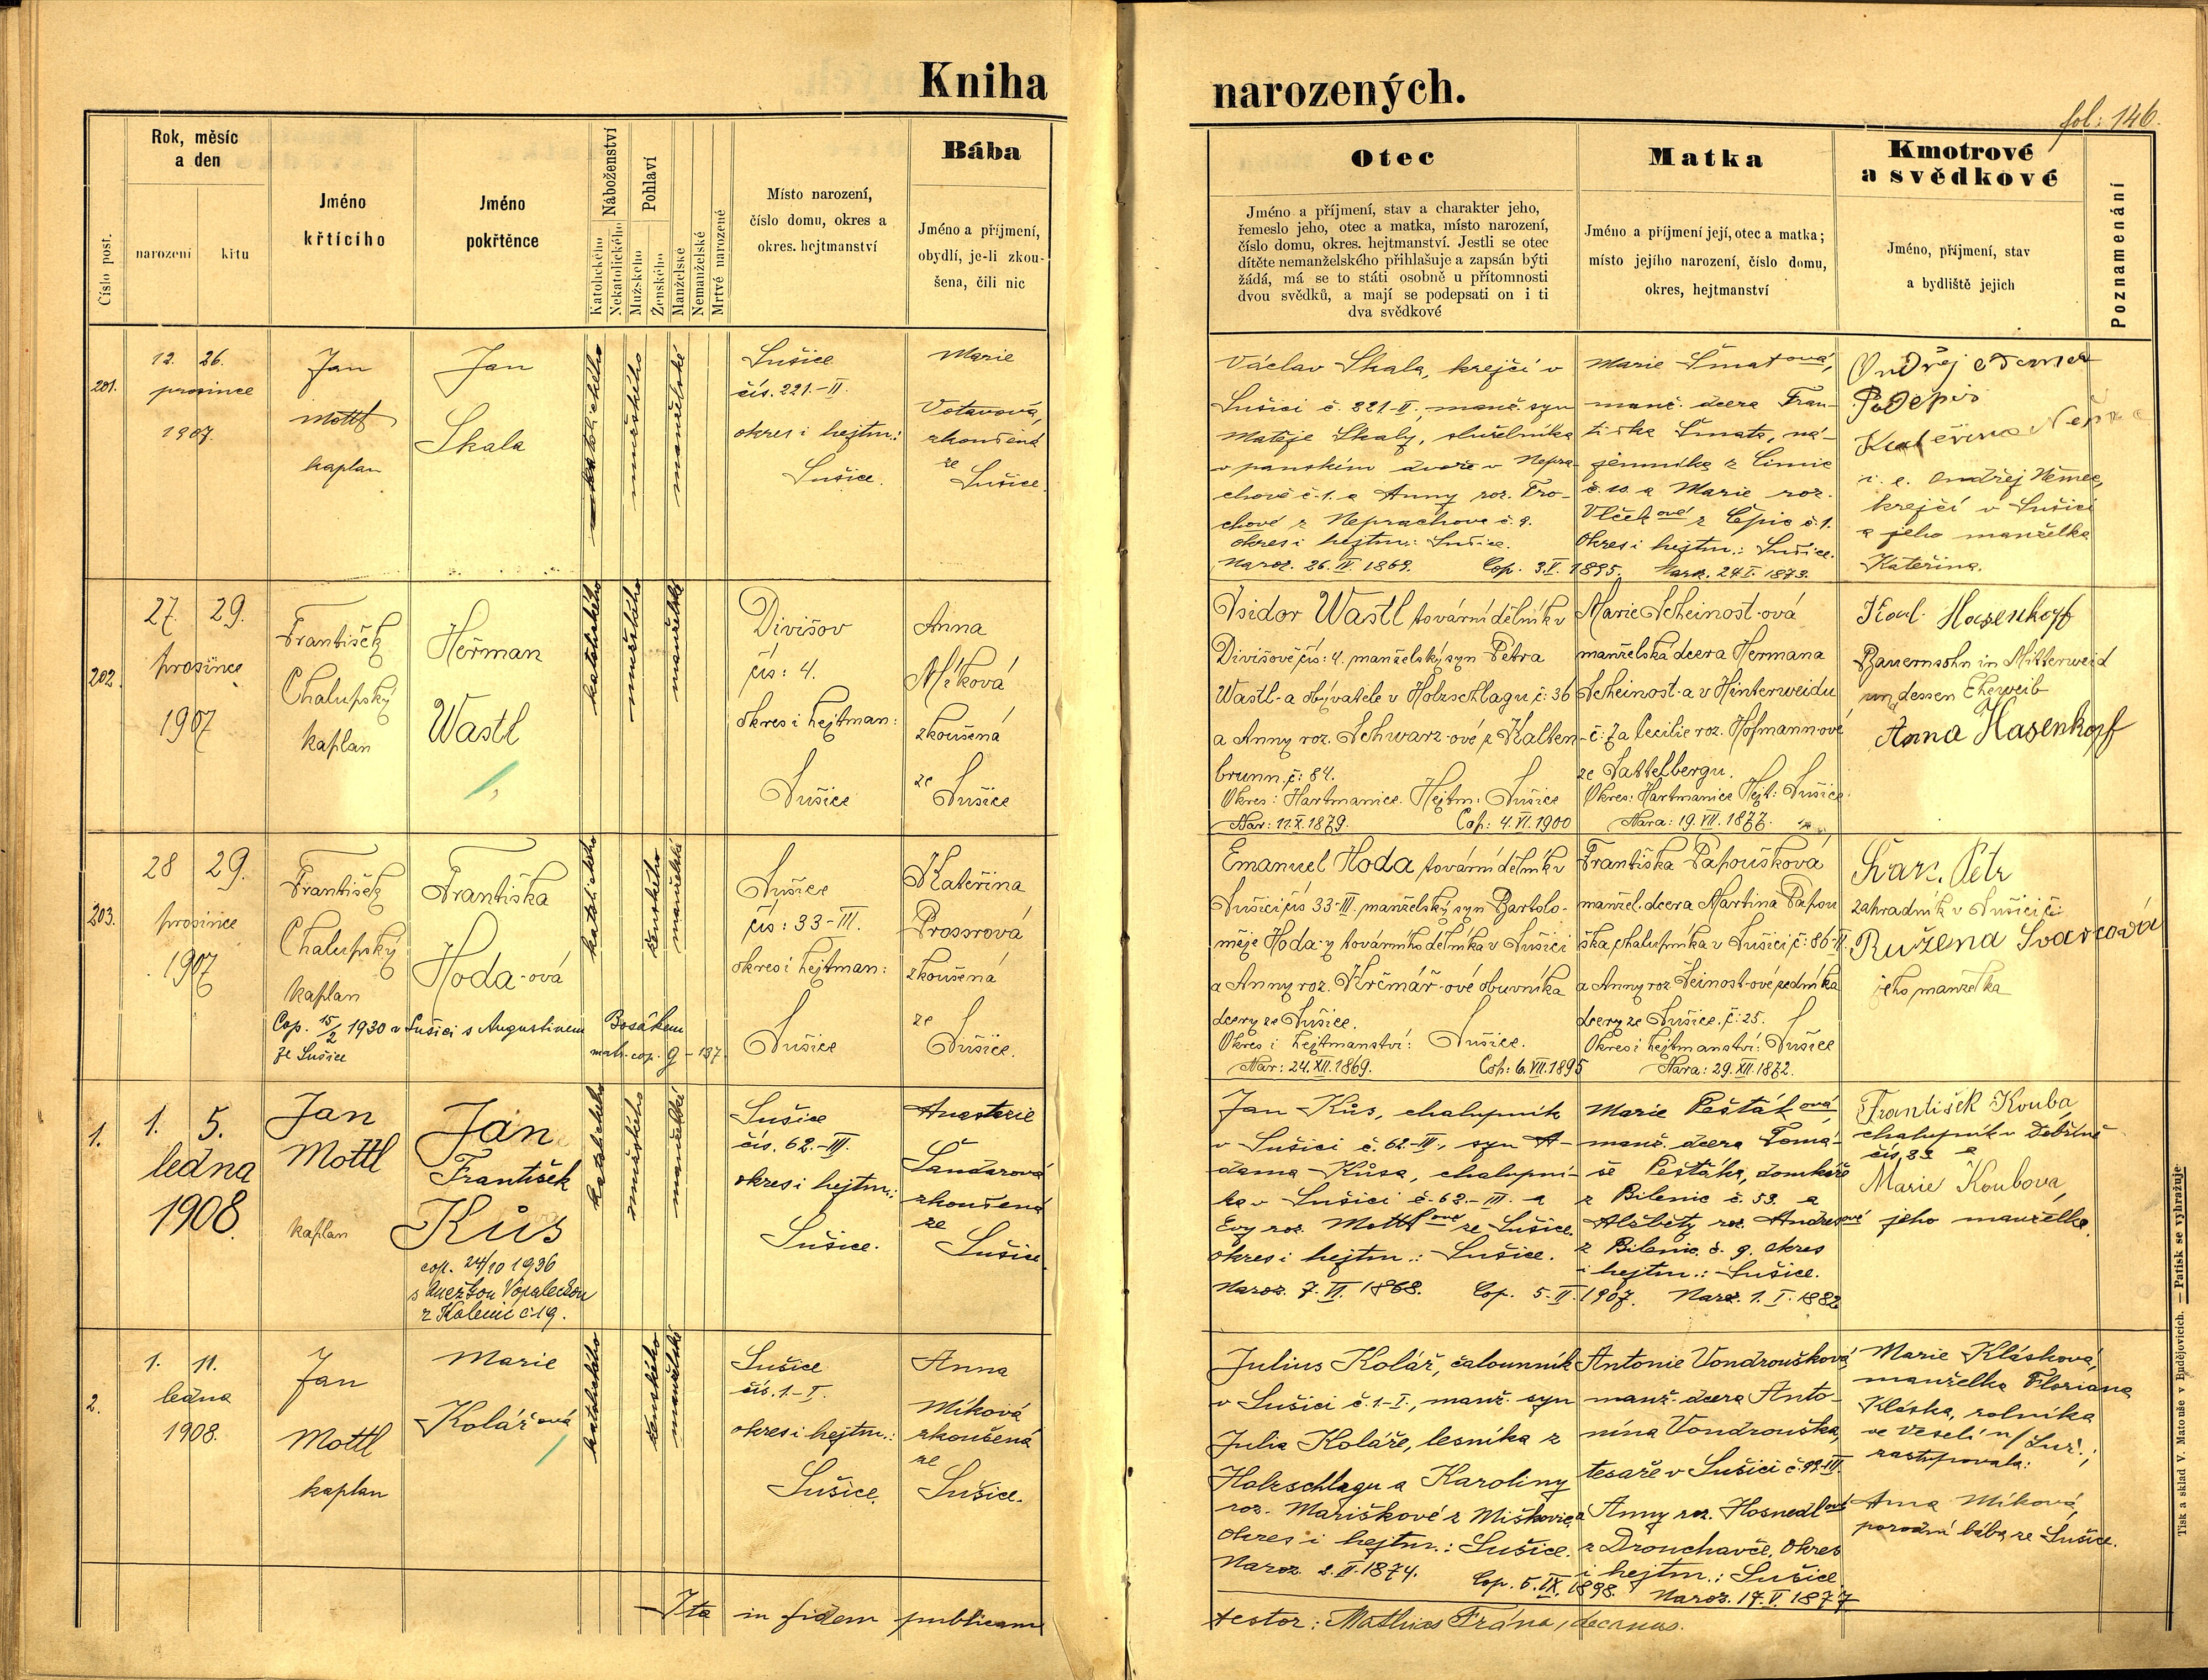 Kniha narozených.
fol: 146.
Číslo post.
Rok, měsíc
a den
narození
křtu
Jméno
křtícího
Jméno
pokřtěnce
Náboženství
Katolického
Nekatolického
Pohlaví
Mužského
Ženského
Manželské
Nemanželské
Mrtvé narozené
Místo narození,
číslo domu, okres a
okres. hejtmanství
Bába
Jméno a příjmení,
obydlí, je-li zkou-
šena, čili nic
Otec
Jméno a příjmení, stav a charakter jeho,
řemeslo jeho, otec a matka, místo narození,
číslo domu, okres. hejtmanství. Jestli se otec
dítěte nemanželského přihlašuje a zapsán býti
žádá, má se to státi osobně u přítomnosti
dvou svědků, a mají se podepsati on i ti
dva svědkové
Matka
Jméno a příjmení její, otec a matka;
místo jejího narození, číslo domu,
okres, hejtmanství
Kmotrové
a svědkové
Jméno, příjmení, stav
a bydliště jejich
Poznamenání
201.
12. 26.
prosince
1907.
Jan
Mottl
kaplan
Jan
Skala
katolického
mužského
manželské
Sušice
čís. 221.-II.
okres i hejtm.:
Sušice.
Marie
Votavová,
zkoušená
ze
Sušice.
Václav Skala, krejčí v
Sušici č. 221-II., manž. syn
Matěje Skaly, služebníka
v panském dvoře v Nepra-
chově č. 1. a Anny roz. Tro-
chové z Neprachova č. 9.
okres i hejtm.: Sušice.
Naroz. 26. IV. 1869. Cop. 3. V. 1895.
Marie Šmatová,
manž. dcera Fran-
tiška Šmata, ná-
jemníka z Čimic
č. 10. a Marie roz.
Vlčkové z Čepic č. 1.
Okres i hejtm.: Sušice.
Naroz. 24. I. 1873.
Ondřej Němec
Podepis
Kateřina
i. e. Ondřej Němec,
krejčí v Sušici
a jeho manželka
Kateřina.
202.
27. 29.
prosince
1907
František
Chalupský
kaplan
Heřman
Wastl
katolického
mužského
manželské
Divišov
čís: 4.
okres i hejtman:
Sušice
Anna
Míková
zkoušená
ze Sušice
Isidor Wastl tovární dělník v
Divišově čís: 4. manželský syn Petra
Wastl-a obývatele v Holzschlagu č: 36
a Anny roz. Schwarz-ové z Kalten-
brunn. č: 84.
Okres: Hartmanice. Hejtm: Sušice
Nar: 11. X. 1879. Cop: 4. VI. 1900
Marie Scheinost-ová
manželská dcera Hermana
Scheinost-a v Hinterweidu
č: 7 a Cecilie roz. Hofmann-ové
ze Sattelbergu.
Okres: Hartmanice Hejt: Sušice.
Nara: 19. VII. 1877.
Karl Hasenkopf
Bauernsohn in Mitterweid
und dessen Eheweib
Anna Hasenkopf
203.
28 29.
prosince
1907
František
Chalupský
kaplan
Františka
Hoda-ová
Cop. 15/2 1930 v Sušici s Augustinem Bosákem
ze Sušice
matr. cop. 9 - 137.
katolického
ženského
manželské
Sušice
čís: 33-III.
okres i hejtman:
Sušice
Kateřina
Prossrová
zkoušená
ze
Sušice.
Emanuel Hoda tovární dělník v
Sušici čís 33-III. manželský syn Bartolo-
měje Hoda-y továrního dělníka v Sušici
a Anny roz. Krčmář-ové obuvníka
dcery ze Sušice.
Okres i hejtmanství: Sušice.
Nar: 24. XII. 1869. Cop: 6. VII. 1895
Františka Papoušková
manžel. dcera Martina Papou
ška chalupníka v Sušici č: 86-II.
a Anny roz Šeinost-ové zedníka
dcery ze Sušice. č: 25.
Okres i hejtmanství: Sušice
Nara: 29. XII. 1872.
Švarc. Petr
zahradník v Sušici č:
Ružena Svarcová
jeho manželka
1.
1. 5.
ledna
1908.
Jan
Mottl
kaplan
Jan
František
Kůs
cop. 24/10 1936
s Anežkou Vopaleckou
z Kolenic č. 19.
katolického
mužského
manželské
Sušice
čís. 62.-III.
okres i hejtm.:
Sušice.
Anastazie
Šandarová
zkoušená
ze
Sušice.
Jan Kůs, chalupník
v Sušici č. 62-III., syn A-
dama Kůsa, chalupní-
ka v Sušici č. 62.-III. a
Evy roz. Mottlové ze Sušice.
okres i hejtm.: Sušice.
Naroz. 7. VI. 1868. Cop. 5. II. 1907.
Marie Pešťáková,
manž. dcera Tomá-
še Pešťáka, domkáře
z Bilenic č. 53. a
Alžběty roz. Andresové
z Bilenic č. 9. okres
i hejtm.: Sušice.
Naroz. 1. I. 1882
František Kouba
chalupník v Dobříně
čís. 33 a
Marie Koubová,
jeho manželka.
2.
1. 11.
ledna
1908.
Jan
Mottl
kaplan
Marie
Kolářová
katolického
ženského
manželské
Sušice
čís. 1.-I.
okres i hejtm.:
Sušice.
Anna
Míková
zkoušená
ze
Sušice.
Julius Kolář, čalounník
v Sušici č. 1-I., manž. syn
Julia Koláře, lesníka z
Holzschlagu a Karoliny
roz. Mariškové z Miškovic,
okres i hejtm.: Sušice.
Naroz. 2. II. 1874. Cop. 5. IX. 1898.
Antonie Vondroušková,
manž. dcera Anto-
nína Vondrouška,
tesaře v Sušici č. 99-III.
a Anny roz. Hosnedlové
z Drouhavče. Okres
i hejtm.: Sušice.
Naroz. 17. V. 1877
Marie Klásková,
manželka Floriana
Kláska, rolníka
ve Veselí n/Luž.;
zastupovala:
Anna Míková,
porodní bába ze Sušice.
Ita in fidem publicam
testor: Mathias Frána, decanus.
Tisk a sklad V. Matouše v Budějovicích. — Patisk se vyhražuje